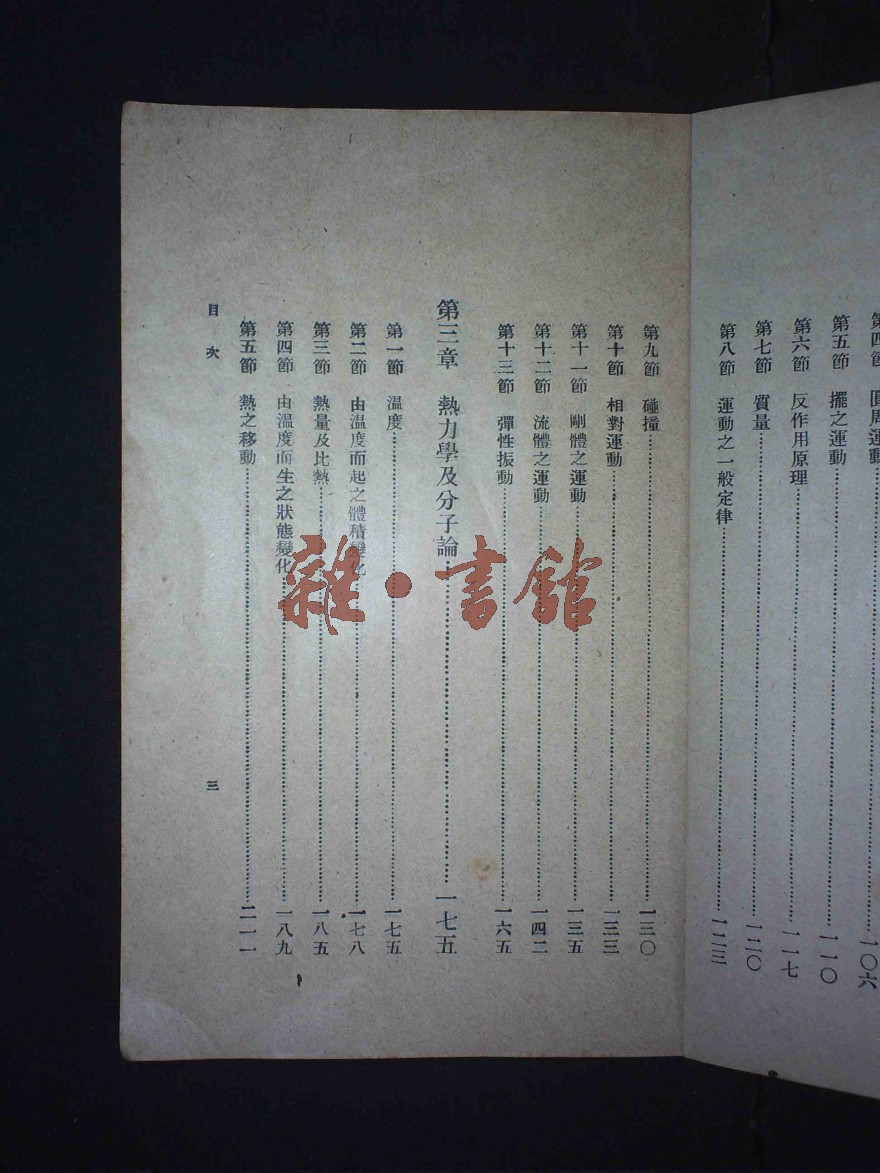 第四節 圓周運動……一〇六
第五節 擺之運動……一一〇
第六節 反作用原理……一一七
第七節 質量……一二〇
第八節 運動之一般定律……一二三
第九節 碰撞……一三〇
第十節 相對運動……一三三
第十一節 剛體之運動……一三五
第十二節 流體之運動……一四二
第十三節 彈性振動……一六五
第三章 熱力學及分子論……一七五
第一節 溫度……一七五
第二節 由溫度而起之體積變化……一七八
第三節 熱量及比熱……一八五
第四節 由溫度而生之狀態變化……一八九
第五節 熱之移動……二一一
目次 三
雜·書館